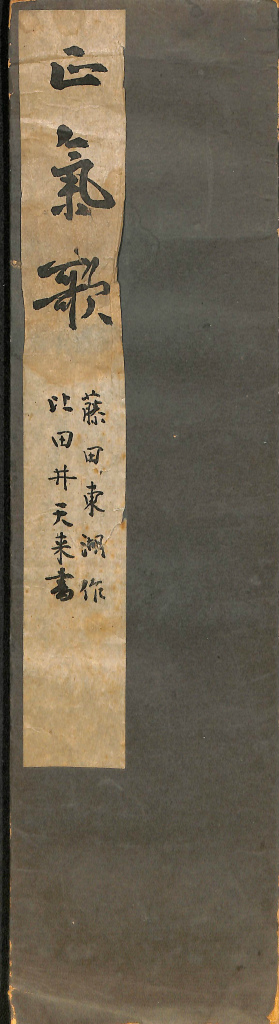 正氣歌
藤田東湖作
比田井天来書